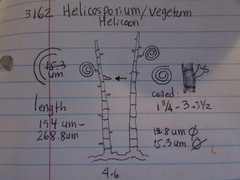 3162 Helicosporium/vegetum
Helicoon
15.3
um
length
194 um-
268.8um
coiled:
1 3/4 - 3 - 3 1/2
12.8 um Ø
15.3 um Ø
4.6